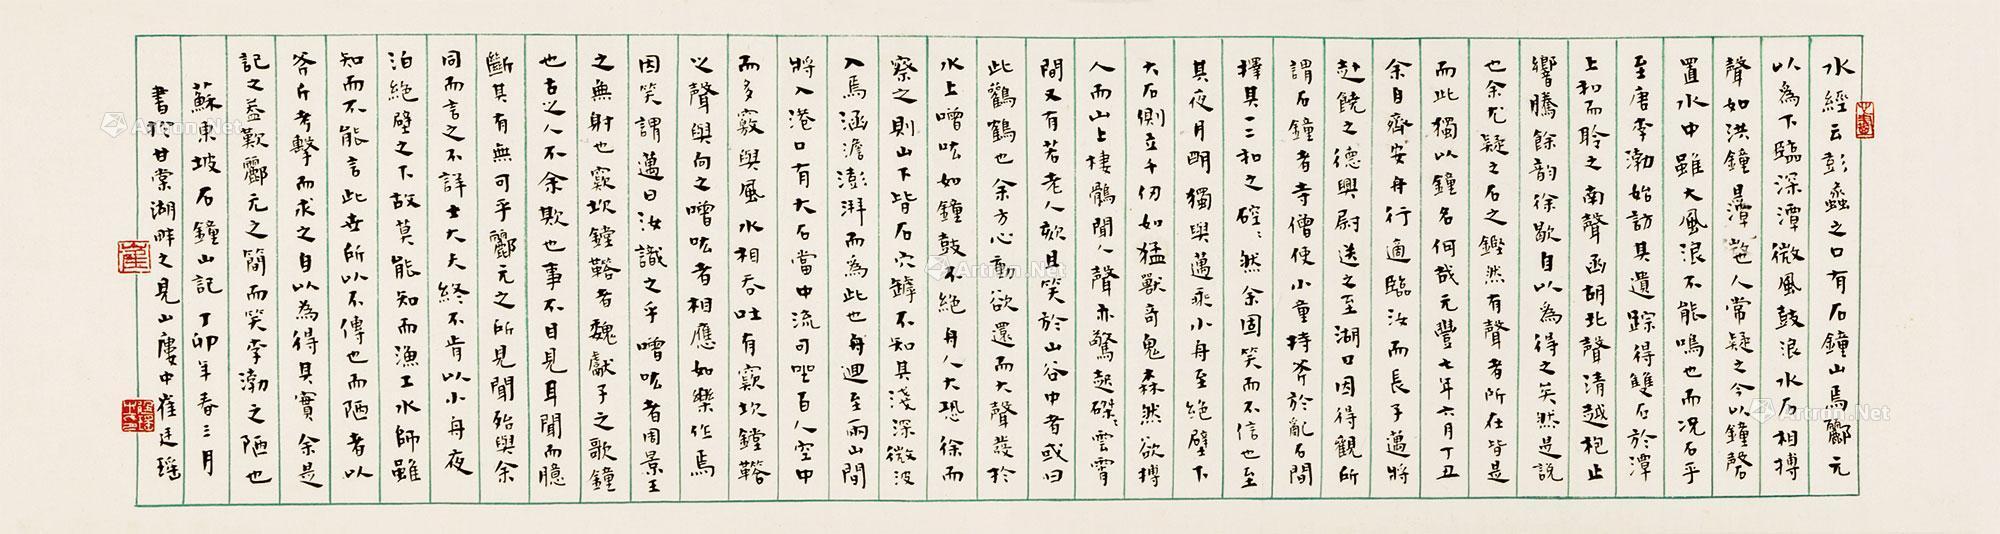 水經云彭蠡之口有石鐘山焉酈元
以為下臨深潭微風鼓浪水石相搏
聲如洪鐘是潭也人常疑之今以鐘磬
置水中雖大風浪不能鳴也而況石乎
至唐李渤始訪其遺踪得雙石於潭
上扣而聆之南聲函胡北聲清越枹止
響騰餘韵徐歇自以為得之矣然是說
也余尤疑之石之鏗然有聲者所在皆是
而此獨以鐘名何哉元豐七年六月丁丑
余自齊安舟行適臨汝而長子邁將
赴饒之德興尉送之至湖口因得觀所
謂石鐘者寺僧使小童持斧於亂石間
擇其一二扣之硿硿然余固笑而不信也至
其夜月明獨與邁乘小舟至絕壁下
大石側立千仞如猛獸奇鬼森然欲搏
人而山上棲鶻聞人聲亦驚起磔磔雲霄
間又有若老人欬且笑於山谷中者或曰
此鸛鶴也余方心動欲還而大聲發於
水上噌吰如鐘鼓不絕舟人大恐徐而
察之則山下皆石穴罅不知其淺深微波
入焉涵澹澎湃而為此也舟迴至兩山間
將入港口有大石當中流可坐百人空中
而多竅與風水相吞吐有窾坎鏜鞳
之聲與向之噌吰者相應如樂作焉
因笑謂邁曰汝識之乎噌吰者周景王
之無射也窾坎鏜鞳者魏獻子之歌鐘
也古之人不余欺也事不目見耳聞而臆
斷其有無可乎酈元之所見聞殆與余
同而言之不詳士大夫終不肯以小舟夜
泊絕壁之下故莫能知而漁工水師雖
知而不能言此世所以不傳也而陋者以
斧斤考擊而求之自以為得其實余是以
記之蓋歎酈元之簡而笑李渤之陋也
蘇東坡石鐘山記丁卯年春三月
書於甘棠湖畔之見山廔中崔廷瑶
Artron.Net